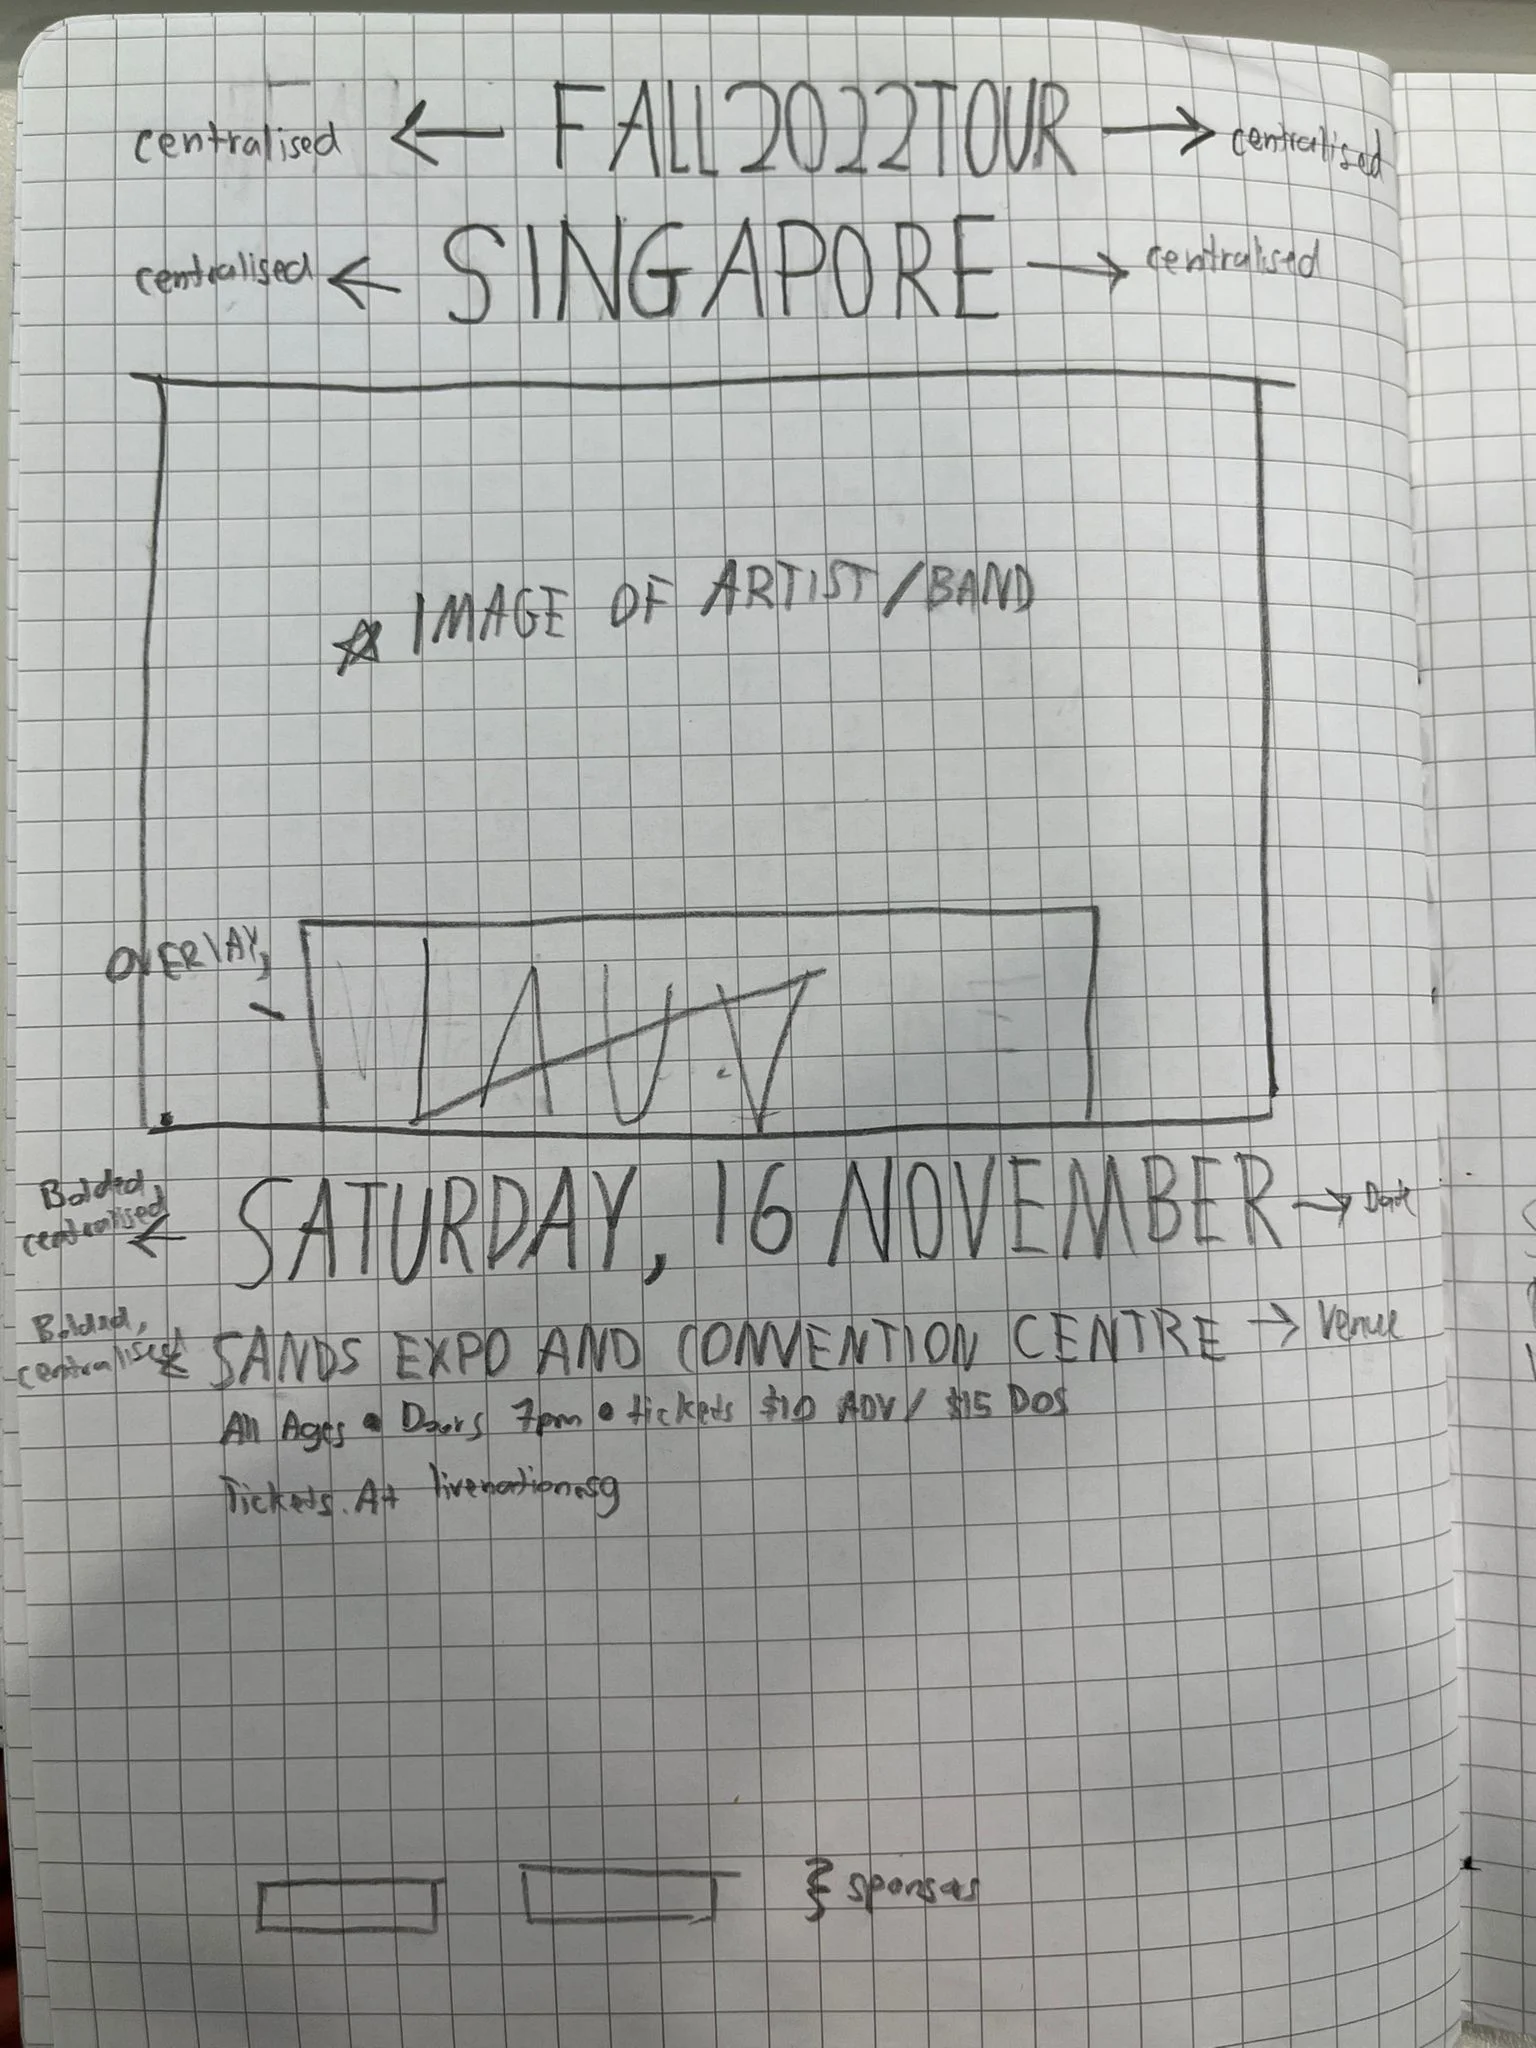 centralised ← FALL 2022 TOUR → centralised
centralised ← SINGAPORE → centralised
☆ IMAGE OF ARTIST/BAND
OVERLAY,
LAUV
Bolded, centralised ← SATURDAY, 16 NOVEMBER → Date
Bolded, centralised ← SANDS EXPO AND CONVENTION CENTRE → Venue
All Ages • Doors 7pm • tickets $10 ADV / $15 DOS
Tickets. At livenation.sg
} sponsors